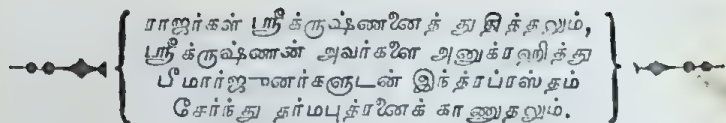 ராஜர்கள் ஸ்ரீக்ருஷ்ணனைத் துதித்தலும்,
ஸ்ரீக்ருஷ்ணன் அவர்களை அனுக்ரஹித்து
பீமார்ஜுனர்களுடன் இந்த்ரப்ரஸ்தம்
சேர்ந்து தர்மபுத்ரனைக் காணுதலும்.